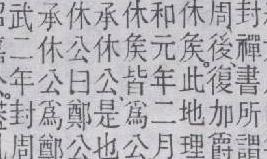 封禪書所謂
周後復加爵
休矦。此地理
和元年二月
休矦皆爲公
承休公是也
休公曰鄭公
承休公爲鄭
武二年封周